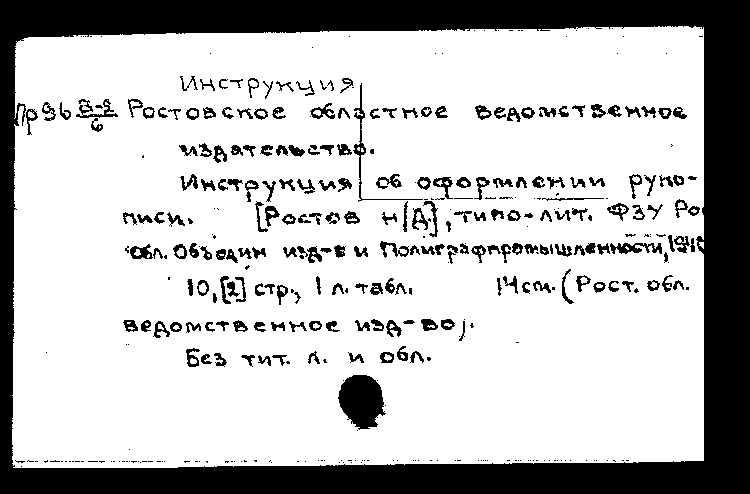 Инструкция
Пр96 В-2/6 Ростовское областное ведомственное
издательство.
Инструкция об оформлении руко-
писи. [Ростов н/Д], типо-лит. ФЗУ Рос
обл. Объедин изд-в и Полиграфпромышленности,
10,[2] стр., 1 л. табл. 14 см. (Рост. обл.
ведомственное изд-во).
Без тит. л. и обл.